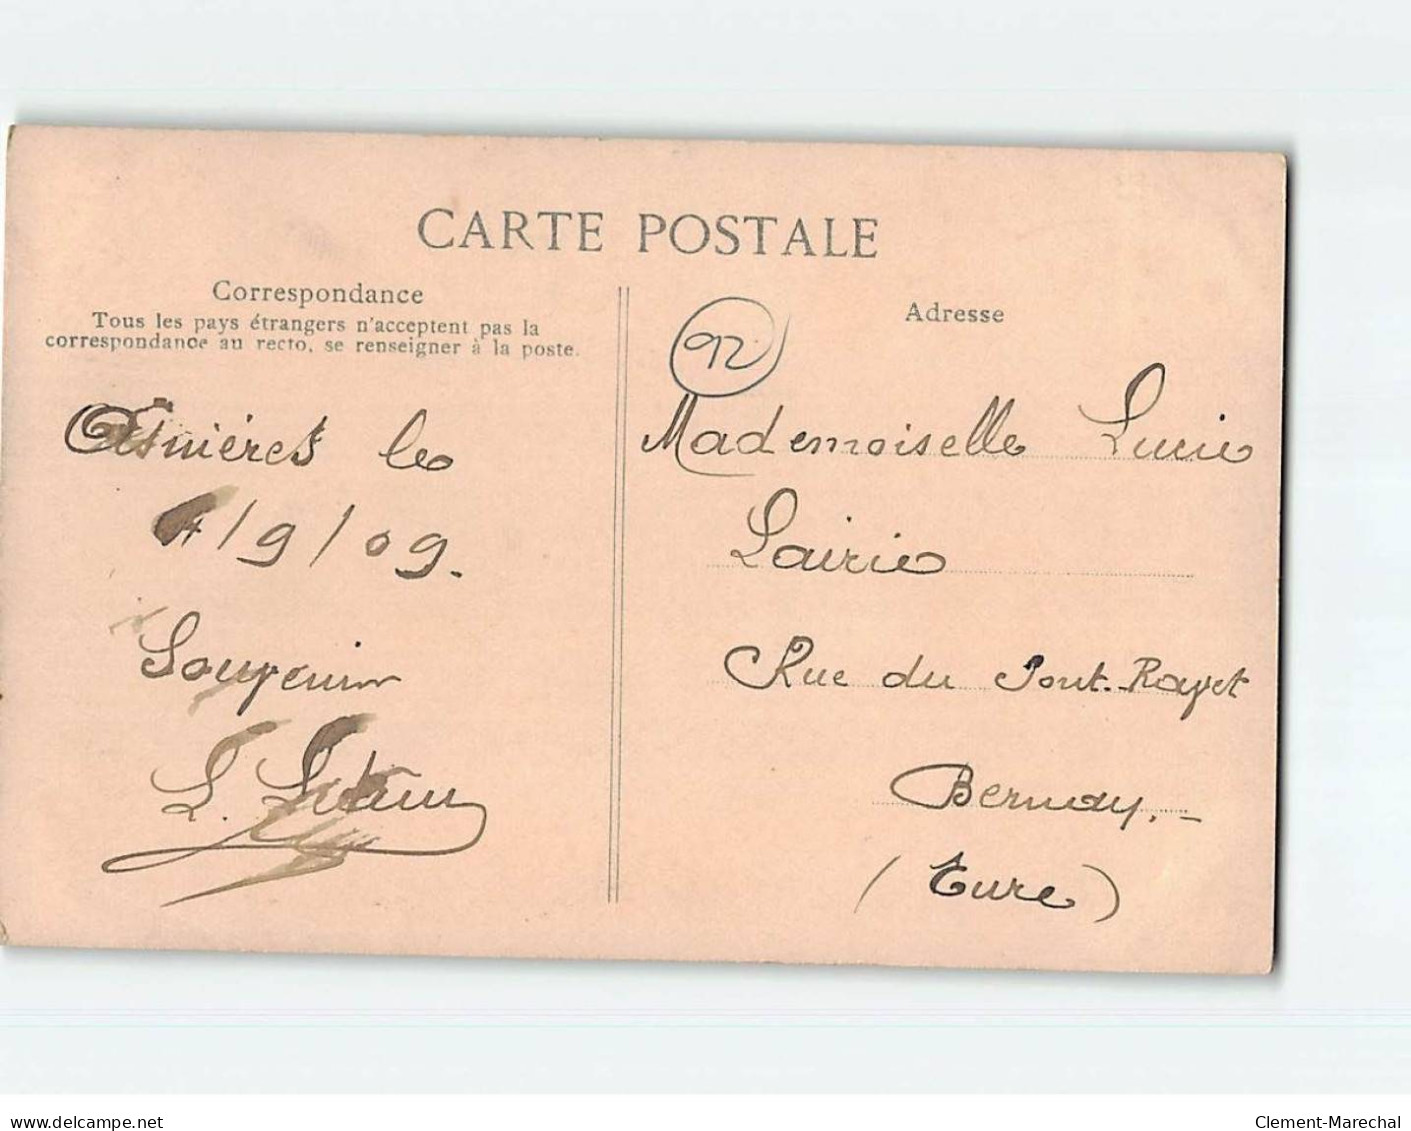 CARTE POSTALE
Correspondance
Tous les pays étrangers n'acceptent pas la
correspondance au recto, se renseigner à la poste.
Asnières le
4/9/09.
Souvenir
L.
Adresse
92
Mademoiselle Lucie
Lairie
Rue du Pont-Rayet
Bernay.
(Eure)
www.delcampe.net
Clement-Marechal